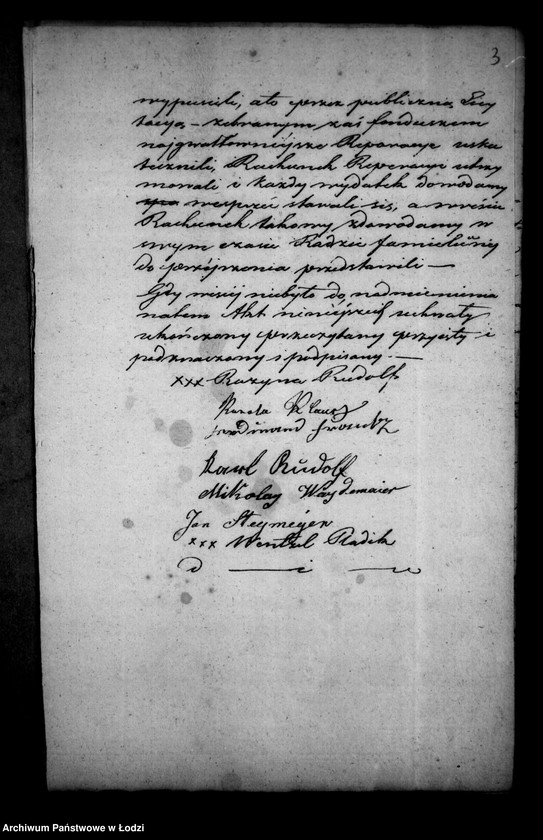 3
wypuścili, a to przez publiczną Licy
tacyą, – zebranym zaś funduszem
najgwałtowniejsze Reparacye usku
tecznili, Rachunek Reperacyi utrzy
mowali i każdy wydatek dowodamy
wesprzeć starali się, a wreście
Rachunek takowy z dowodamy w
swym czasie Radzie familiiney
do przejrzenia przedstawili —
Gdy więcej niebyło do nadmienienia
natem Akt niniejszej uchwały
ukończony przeczytany przyjęty i
podznaczony i podpisany. —
xxx Rozyna Rudolf
Klauz
Ferdinand Frantz
Karol Rudolf
Mikolay Waydemaier
Jan Steymeyer
xxx Wentzel Radik
Archiwum Państwowe w Łodzi